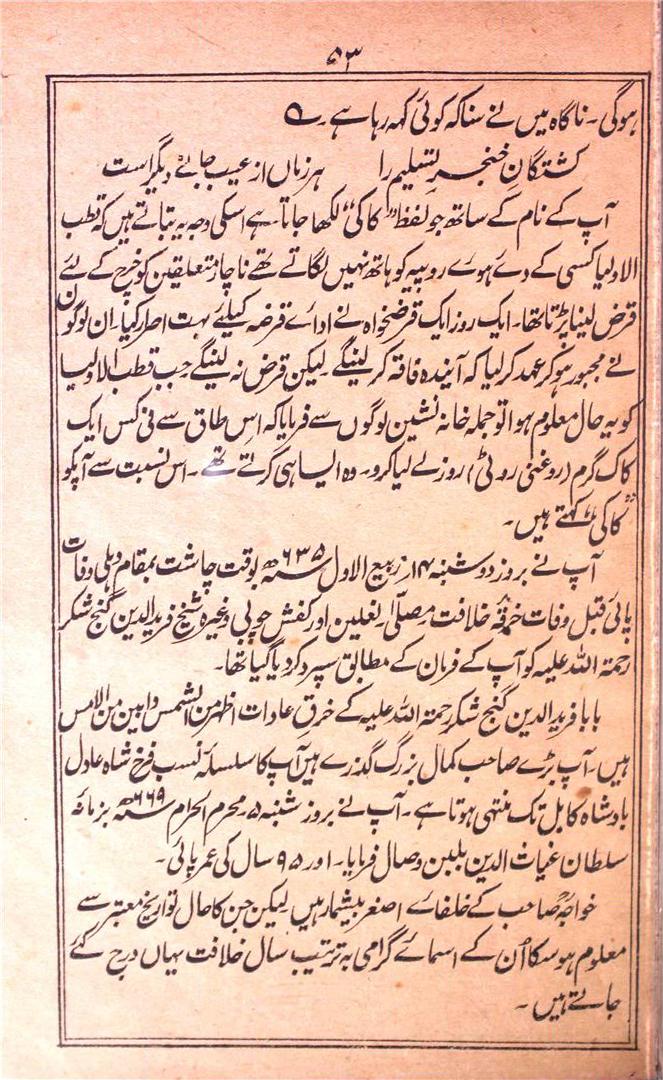 ۵۳
ہوگی۔ ناگاہ میں نے سنا کہ کوئی کہہ رہا ہے۔ ؎
کشتگانِ خنجرِ تسلیم را ہر زماں از غیب جانے دیگر است
آپ کے نام کے ساتھ جو لفظ "کاکی" لکھا جاتا ہے اسکی وجہ یہ بتاتے ہیں کہ قطب
الاولیا کسی کے دئے ہوے روپیہ کو ہاتھ نہیں لگاتے تھے ناچار متعلقین کو خرچ کے لئے
قرض لینا پڑتا تھا۔ ایک روز ایک قرضخواہ نے اداے قرضہ کیلئے بہت اصرار کیا۔ ان لوگوں
نے مجبور ہو کر عہد کر لیا کہ آیندہ فاقہ کر لینگے لیکن قرض نہ لینگے جب قطب الاولیا
کو یہ حال معلوم ہوا تو جملہ خانہ نشین لوگوں سے فرمایا کہ اس طاق سے فی کس ایک
کاک گرم (روغنی روٹی) روز لے لیا کرو۔ وہ ایسا ہی کرتے تھے۔ اس نسبت سے آپکو
"کاکی" کہتے ہیں۔
آپ نے بروز دوشنبہ ۱۴ ربیع الاول ۶۳۵ھ بوقت چاشت بمقام دہلی وفات
پائی قبل وفات خرقۂ خلافت مصلّٰی نعلین اور کفش چوبی وغیرہ شیخ فریدالدین گنج شکر
رحمۃ اللہ علیہ کو آپ کے فرمان کے مطابق سپرد کر دیا گیا تھا۔
بابا فریدالدین گنج شکر رحمۃ اللہ علیہ کے خرق عادات اظہر من الشمس و ابین من الامس
ہیں۔ آپ بڑے صاحب کمال بزرگ گذرے ہیں آپ کا سلسلۂ نسب فرخ شاہ عادل
بادشاہ کابل تک منتہی ہوتا ہے۔ آپ نے بروز شنبہ ۵ محرم الحرام ۶۶۹ھ بزمانۂ
سلطان غیاث الدین بلبن وصال فرمایا۔ اور ۹۵ سال کی عمر پائی۔
خواجہؒ صاحب کے خلفاے اصغر بیشمار ہیں لیکن جن کا حال تواریخ معتبر سے
معلوم ہو سکا اُن کے اسمائے گرامی بہ ترتیب سال خلافت یہاں درج کئے
جاتے ہیں۔